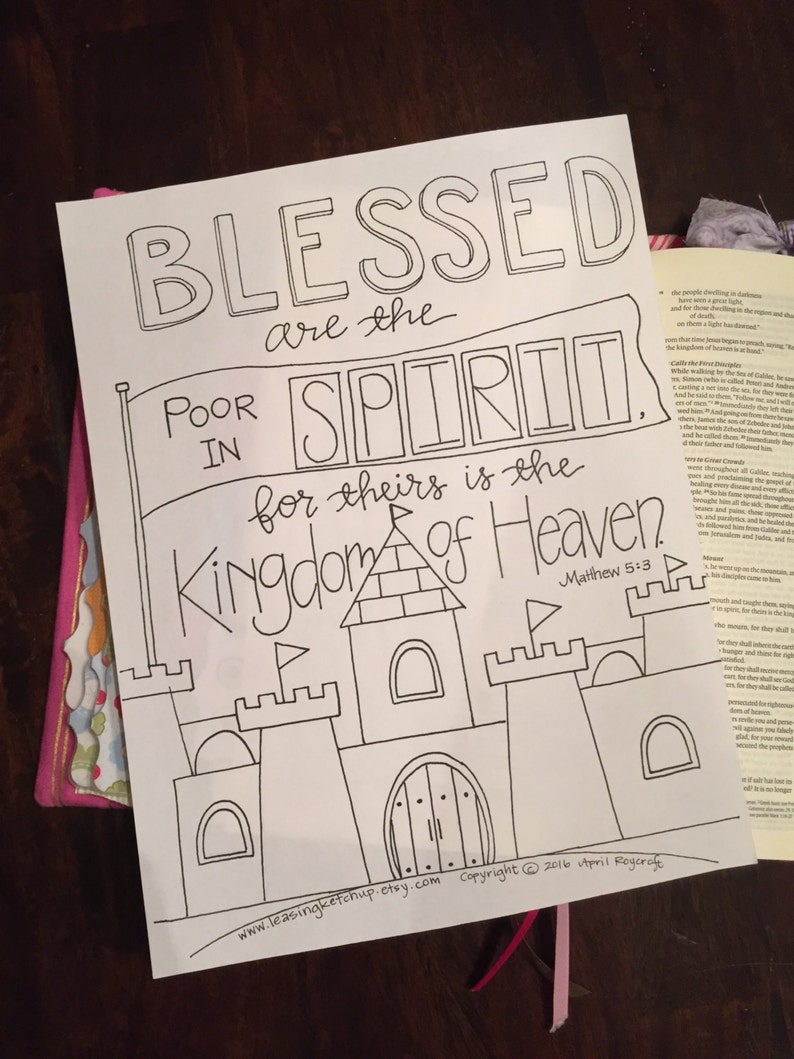 BLESSED
are the
POOR
IN
SPIRIT,
for theirs is the
Kingdom of Heaven.
Matthew 5:3
www.leasingketchup.etsy.com Copyright © 2016 April Roycraft
the people dwelling in darkness
have seen a great light,
and for those dwelling in the region and
of death,
on them a light has dawned."
rom that time Jesus began to preach, saying,
the kingdom of heaven is at hand."
Calls the First Disciples
While walking by the Sea of Galilee, he
Simon (who is called Peter) and
casting a net into the sea, for they were
And he said to them, "Follow me, and I will
ers of men." Immediately they left their
wed him. And going on from there he saw
James the son of Zebedee and
the boat with Zebedee their father,
and he called them. Immediately they
d their father and followed him.
ers to Great Crowds
went throughout all Galilee,
goes and proclaiming the gospel of
healing every disease and every
ple. So his fame spread throughout
brought him all the sick, those
seases and pains, those oppressed
and paralytics, and he healed
ds followed him from Galilee and
om Jerusalem and Judea, and
Mount
he went up on the mountain,
his disciples came to him.
mouth and taught them, saying
r in spirit, for theirs is the
who mourn, for they shall
for they shall inherit the earth
hunger and thirst for
satisfied.
for they shall receive mercy
eart, for they shall see God
ers, for they shall be called
persecuted for
dom of heaven.
rs revile you and
vil against you falsely
glad, for your reward
secuted the prophets
if salt has lost its
ed? It is no longer